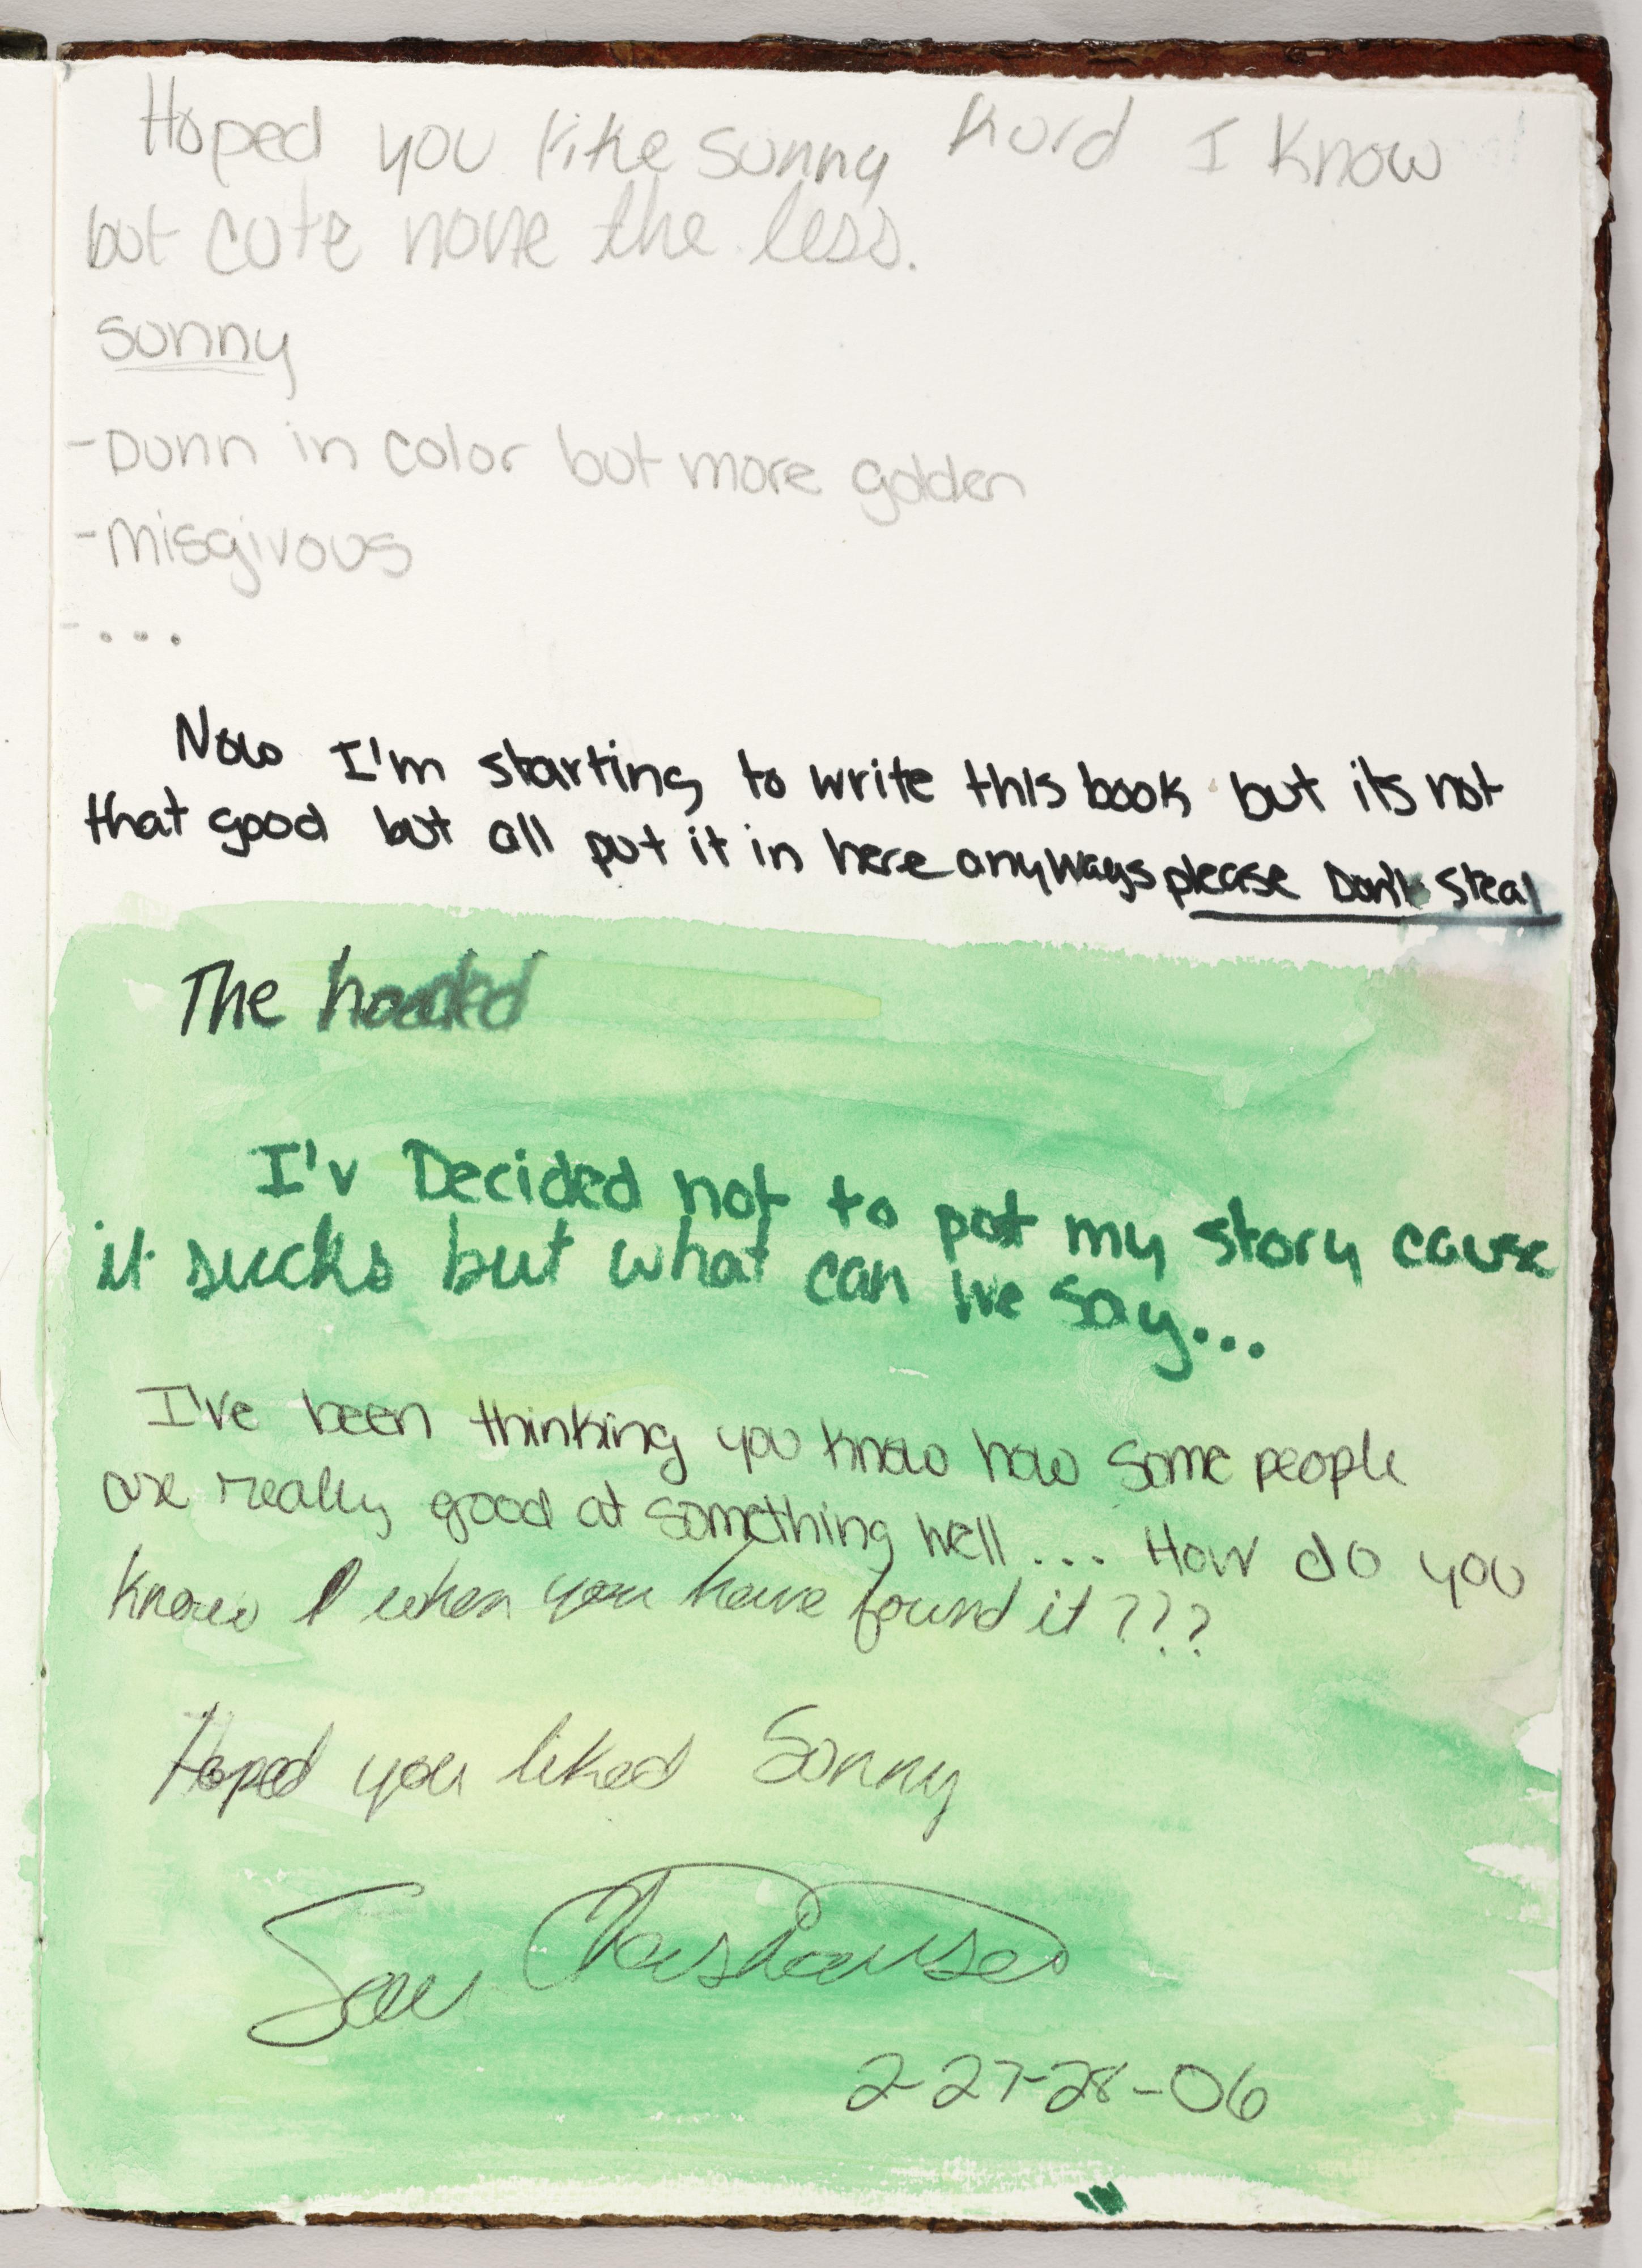 Hoped you like sunny I know
but cute none the less.
sunny
-Dunn in color but more golden
-misgivous
- ...
Now I'm starting to write this book but its not
that good but all put it in here anyways please Don't steal
The hooded
I'v Decided not to put my story cause
it sucks but what can we say...
I've been thinking you know how some people
are really good at something well... How do you
know when you have found it???
Hoped you liked Sonny
2-27-28-06